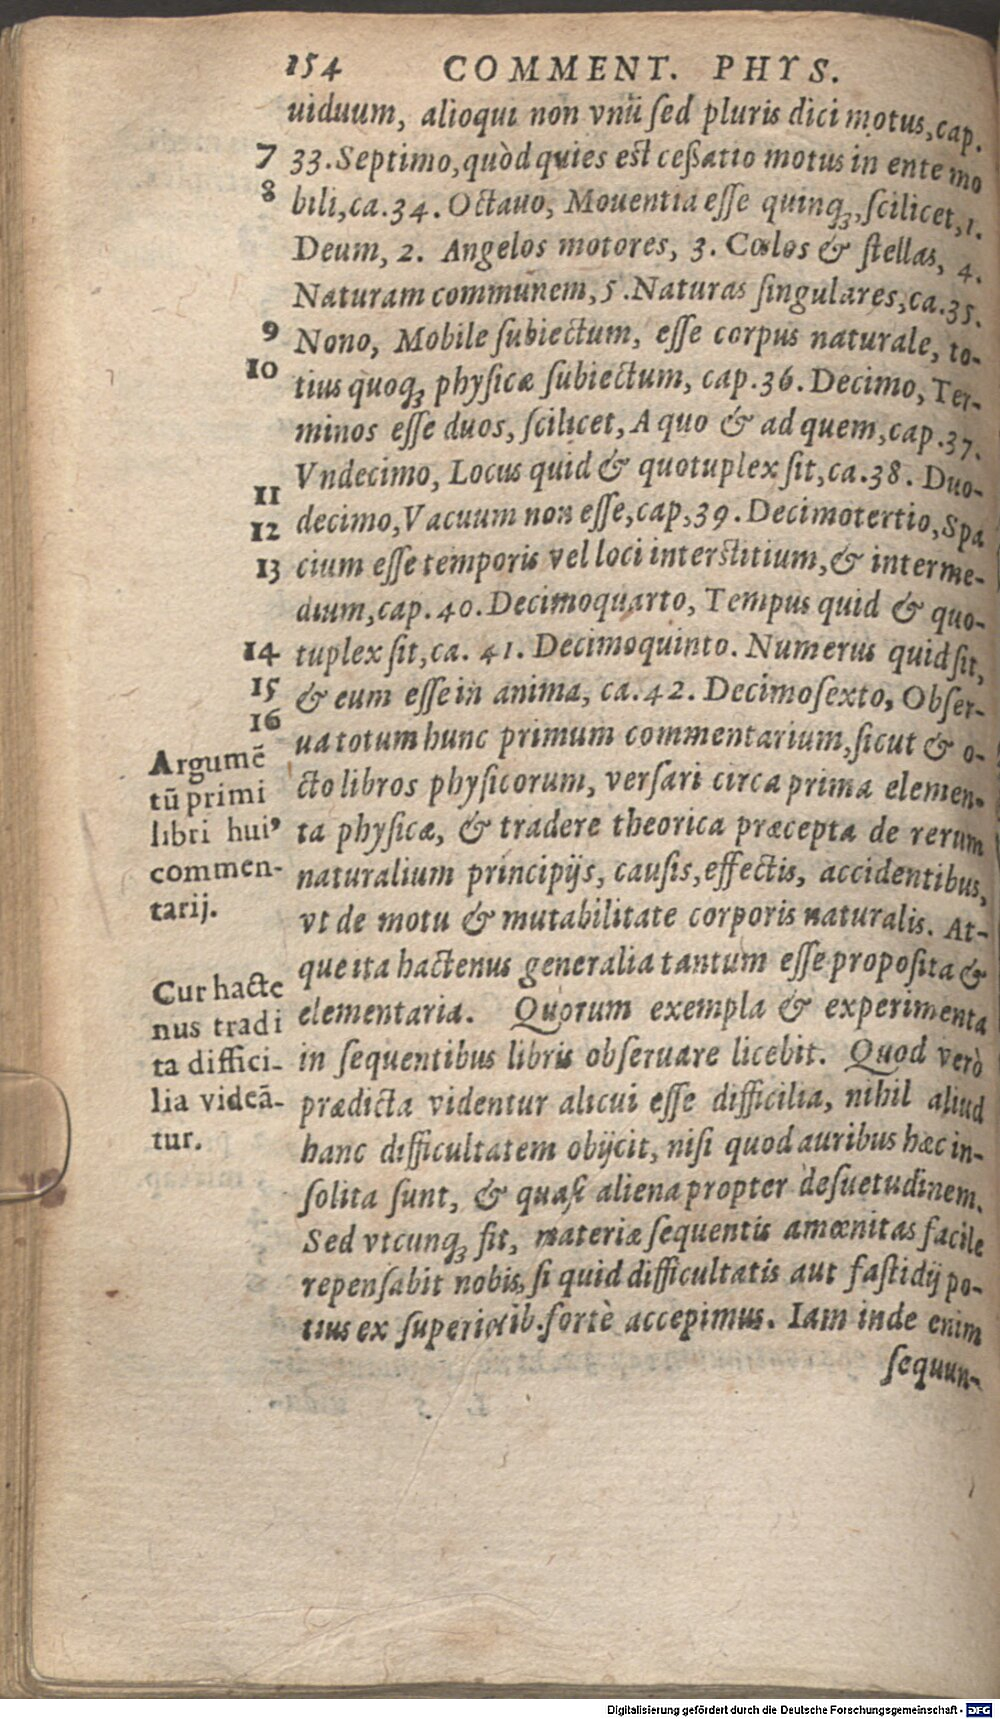 154 COMMENT. PHYS.
uiduum, alioqui non vnũ sed pluris dici motus, cap.
7 33. Septimo, quòd quies est ceßatio motus in ente mo
8 bili, ca. 34. Octauo, Mouentia esse quinq;, scilicet, 1.
Deum, 2. Angelos motores, 3. Cœlos & stellas, 4.
Naturam communem, 5. Naturas singulares, ca. 35.
9 Nono, Mobile subiectum, esse corpus naturale, to-
10 tius quoq; physicæ subiectum, cap. 36. Decimo, Ter-
minos esse duos, scilicet, A quo & ad quem, cap. 37.
Vndecimo, Locus quid & quotuplex sit, ca. 38. Duo-
11
12 decimo, Vacuum non esse, cap, 39. Decimotertio, Spa
13 cium esse temporis vel loci interstitium, & interme-
dium, cap. 40. Decimoquarto, Tempus quid & quo-
14 tuplex sit, ca. 41. Decimoquinto. Numerus quid sit,
15 & eum esse in anima, ca. 42. Decimosexto, Obser-
16
ua totum hunc primum commentarium, sicut & o-
cto libros physicorum, versari circa prima elemen-
ta physicæ, & tradere theorica præcepta de rerum
naturalium principijs, causis, effectis, accidentibus,
vt de motu & mutabilitate corporis naturalis. At-
que ita hactenus generalia tantum esse proposita &
elementaria. Quorum exempla & experimenta
in sequentibus libris obseruare licebit. Quod verò
prædicta videntur alicui esse difficilia, nihil aliud
hanc difficultatem obijcit, nisi quod auribus hæc in-
solita sunt, & quasi aliena propter desuetudinem.
Sed vtcunq; sit, materiæ sequentis amœnitas facile
repensabit nobis, si quid difficultatis aut fastidij po-
tius ex superiorib. fortè accepimus. Iam inde enim
sequun-
Argumẽ
tũ primi
libri hui⁹
commen-
tarij.
Cur hacte
nus tradi
ta diffici-
lia videã-
tur.
Digitalisierung gefördert durch die Deutsche Forschungsgemeinschaft - DFG